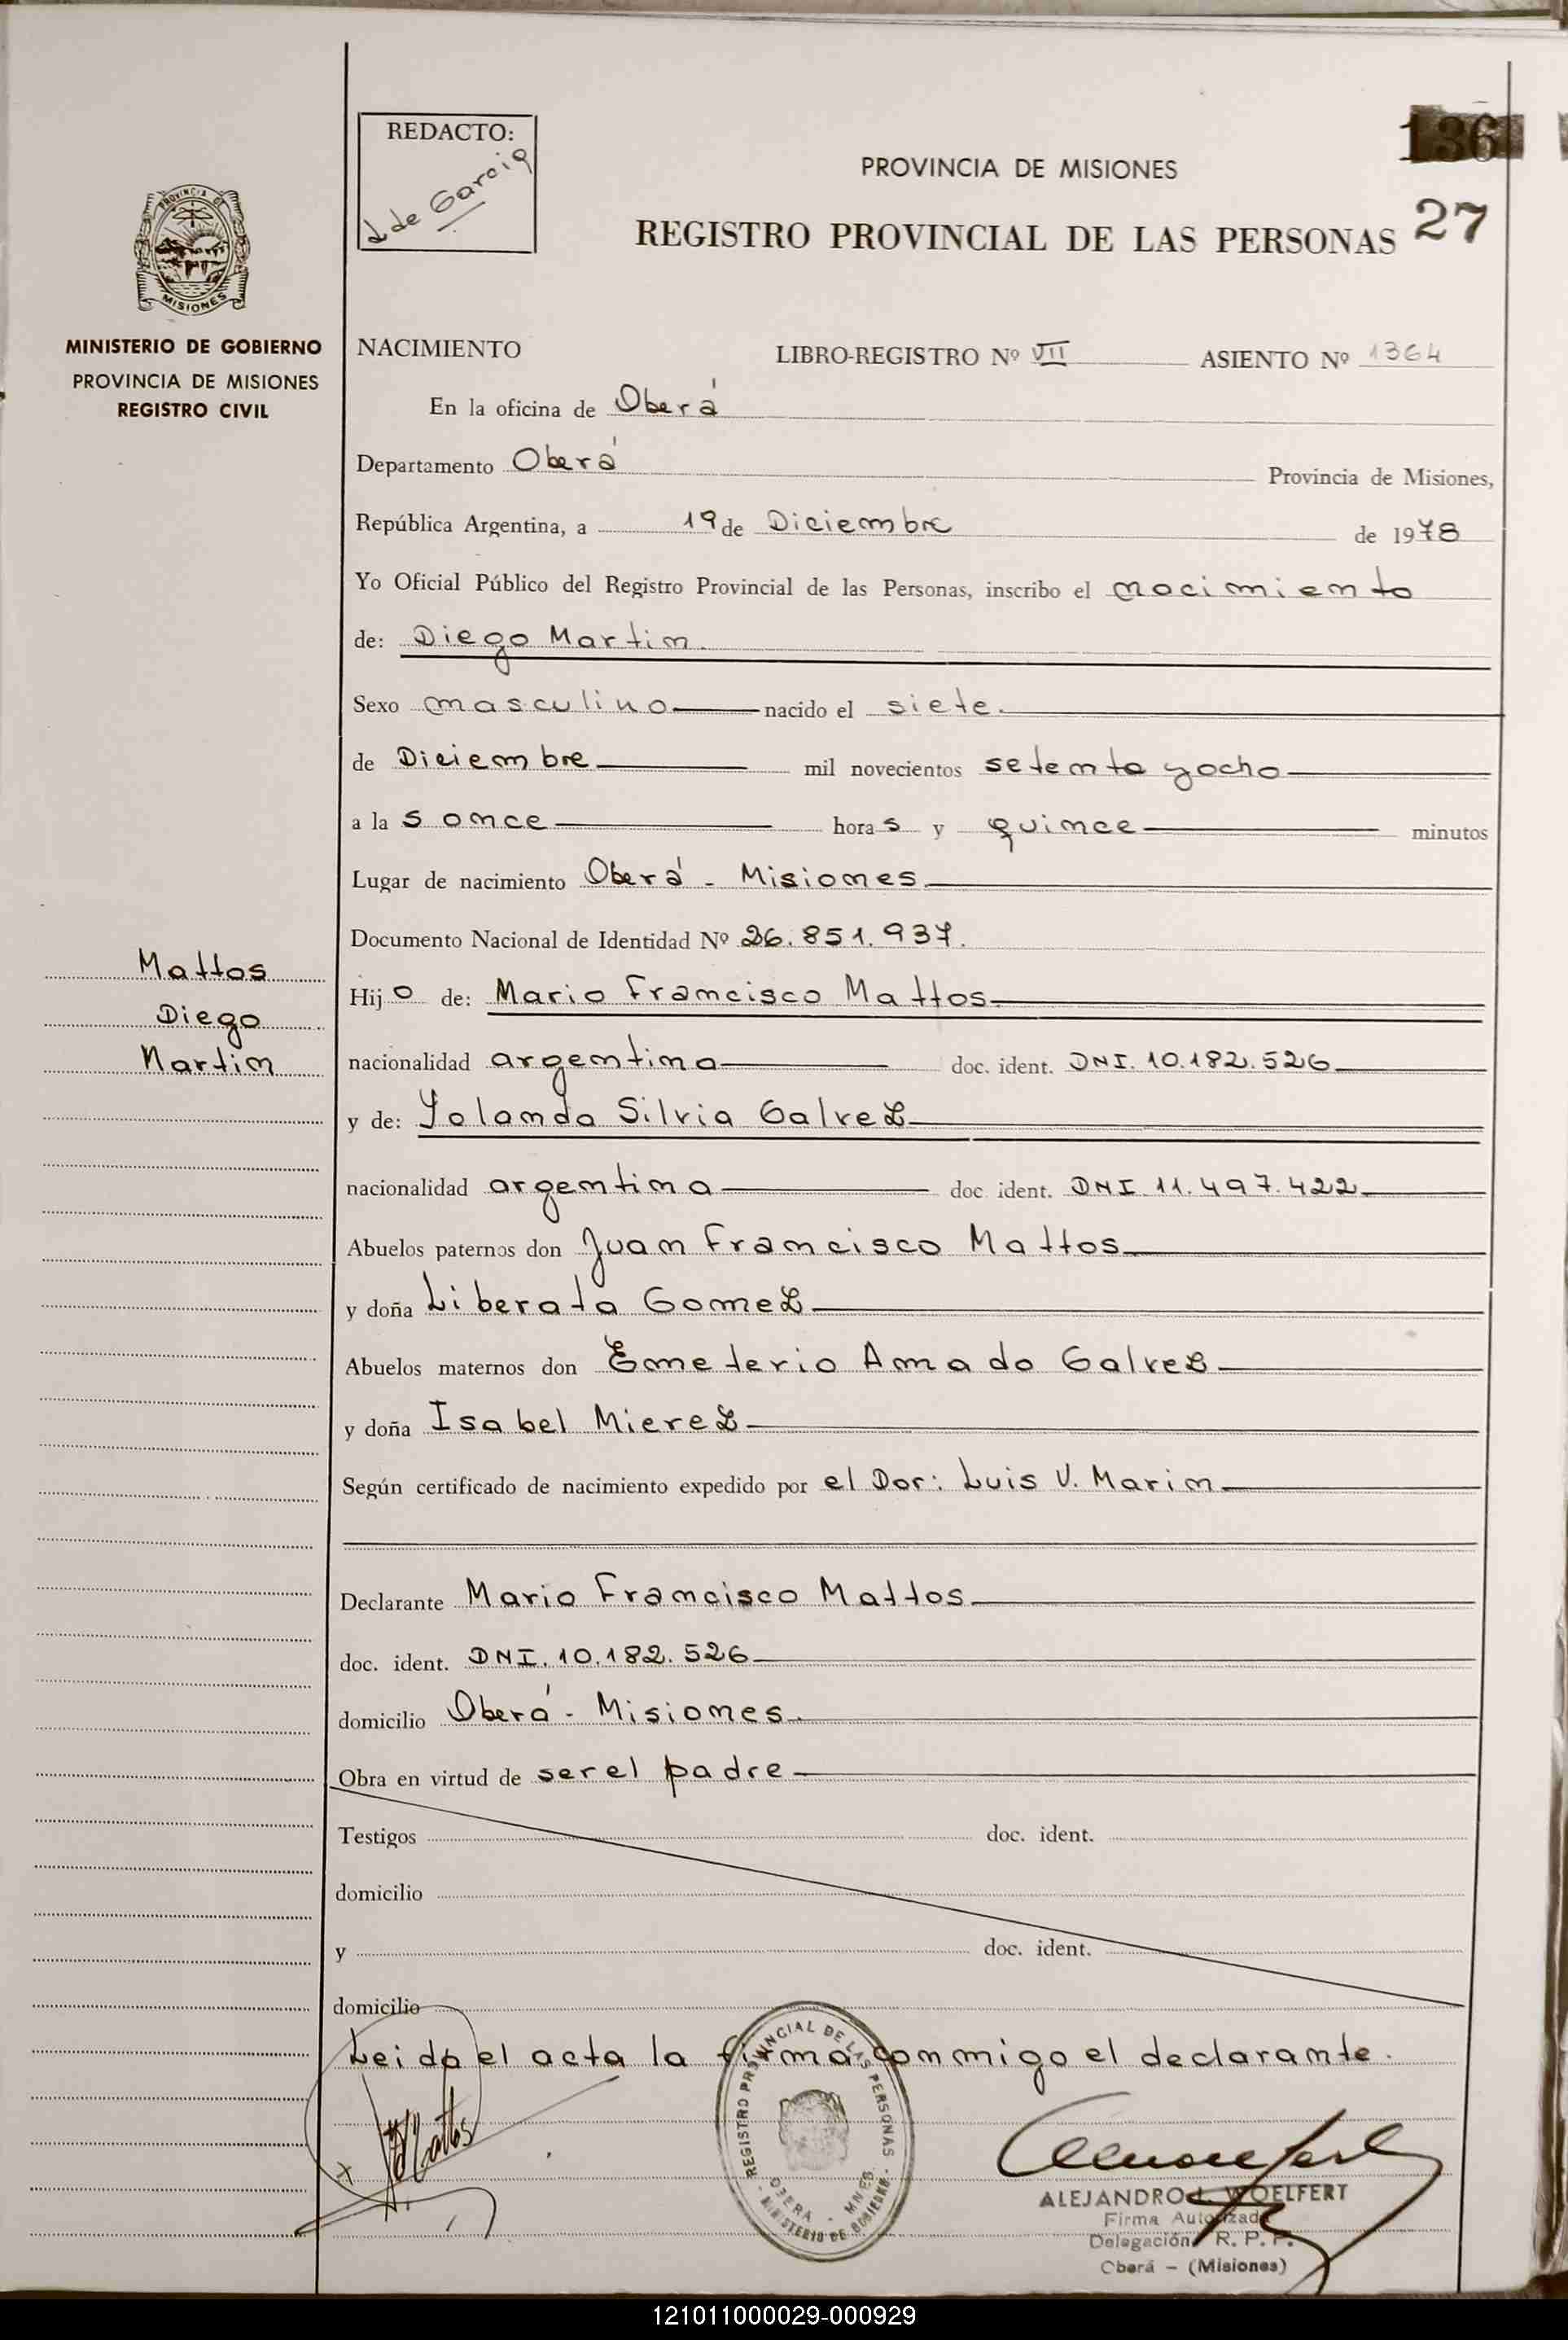 REDACTO:
L de Garcia
136
PROVINCIA DE MISIONES
27
REGISTRO PROVINCIAL DE LAS PERSONAS
PROVINCIA DE
MISIONES
MINISTERIO DE GOBIERNO
PROVINCIA DE MISIONES
REGISTRO CIVIL
NACIMIENTO LIBRO-REGISTRO Nº VII ASIENTO Nº 1364
En la oficina de Oberá
Departamento Oberá Provincia de Misiones,
República Argentina, a 19 de Diciembre de 1978
Yo Oficial Público del Registro Provincial de las Personas, inscribo el nacimiento
de: Diego Martin.
Sexo masculino nacido el siete.
de Diciembre mil novecientos setenta y ocho
a las once horas y quince minutos
Lugar de nacimiento Oberá - Misiones
Documento Nacional de Identidad Nº 26.851.937.
Mattos
Diego
Martin
Hijo de: Mario Francisco Mattos
nacionalidad argentina doc. ident. DNI. 10.182.526
y de: Yolanda Silvia Galvez
nacionalidad argentina doc. ident. DNI 11.497.422
Abuelos paternos don Juan Francisco Mattos
y doña Liberata Gomez
Abuelos maternos don Emeterio Amado Galvez
y doña Isabel Mierez
Según certificado de nacimiento expedido por el Dor: Luis V. Marin
Declarante Mario Francisco Mattos
doc. ident. DNI. 10.182.526
domicilio Oberá - Misiones.
Obra en virtud de ser el padre
Testigos doc. ident.
domicilio
y doc. ident.
domicilio
Leida el acta la firma conmigo el declarante.
Mattos
REGISTRO PROVINCIAL DE LAS PERSONAS
OBERA - MNES.
MINISTERIO DE GOBIERNO
ALEJANDRO L. WOELFERT
Firma Autorizada
Delegación R. P. P.
Oberá - (Misiones)
121011000029-000929